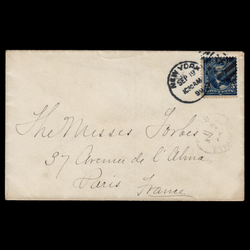 NEW YORK
SEP 19
10 30 AM
The Misses Forbes
37 Avenue de l'Alma
Paris
France